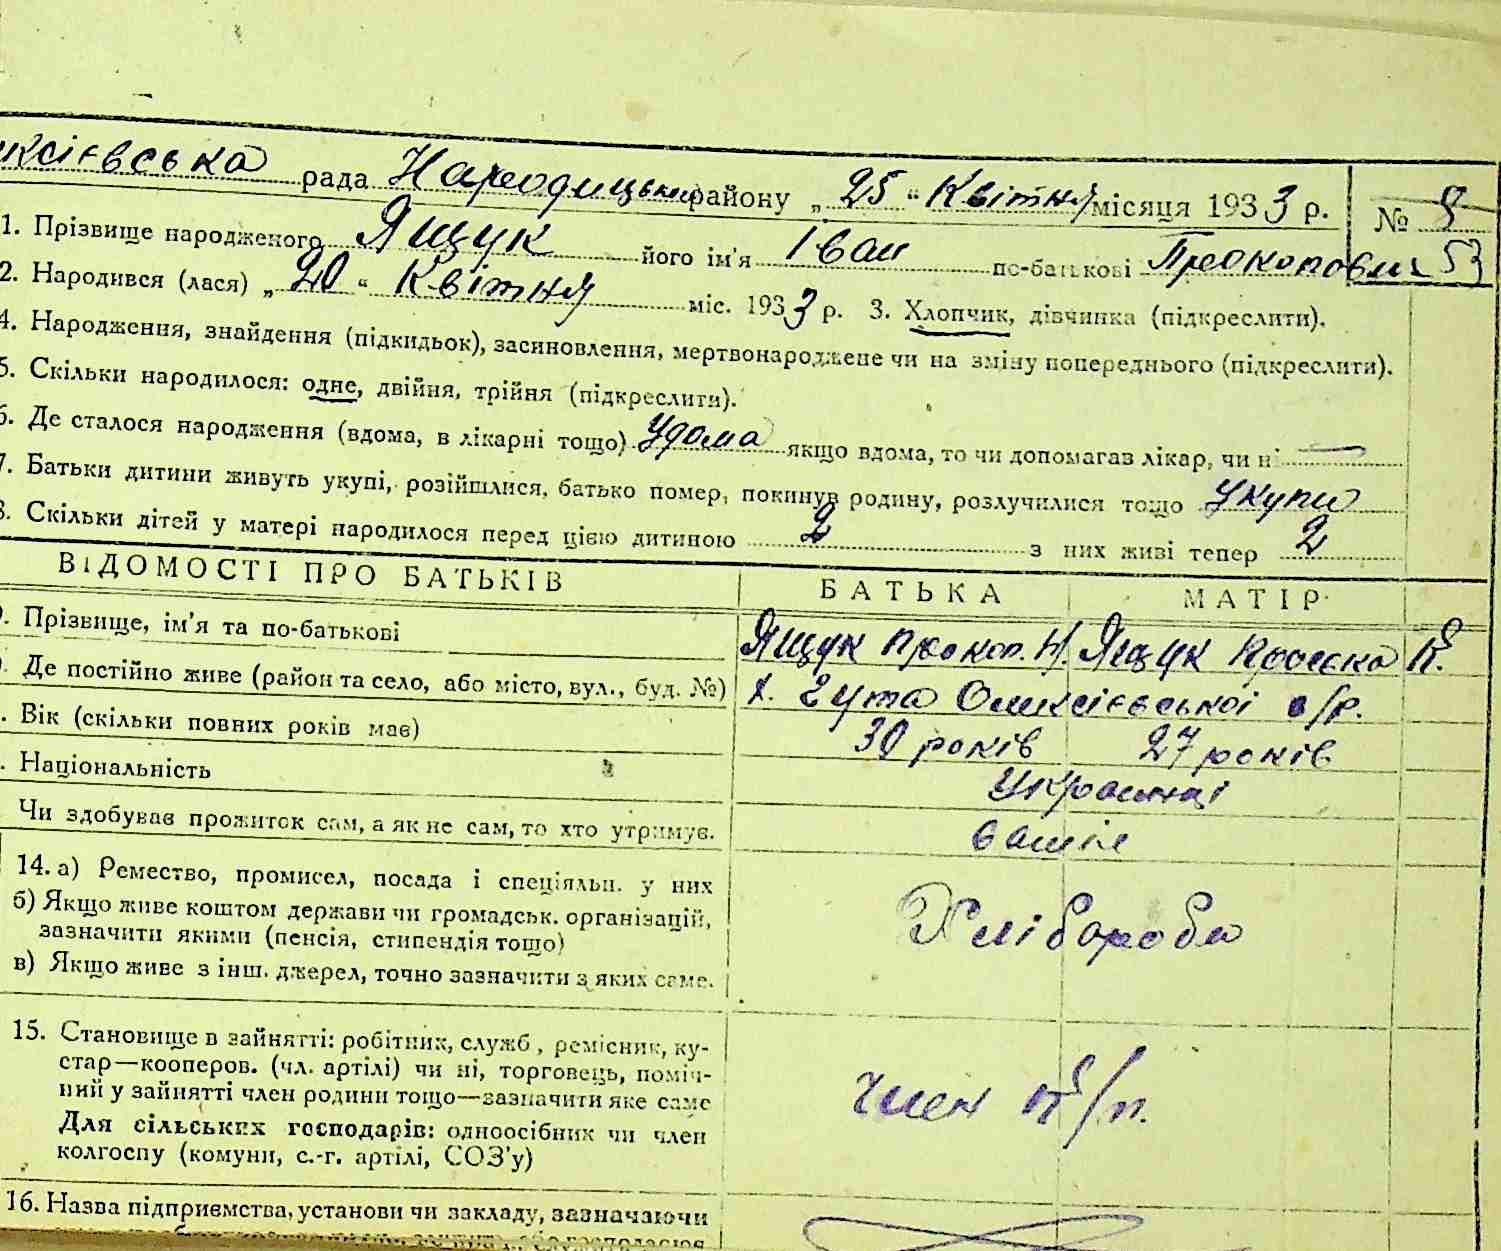 ксієвська рада Народицьки району „25“ Квітня місяця 1933 р. № 8
1. Прізвище народженого Ящук його ім'я Іван по-батькові Прокопович 53
2. Народився (лася) „20“ Квітня міс. 1933 р. 3. Хлопчик, дівчинка (підкреслити).
4. Народження, знайдення (підкидьок), засиновлення, мертвонароджене чи на зміну попереднього (підкреслити).
5. Скільки народилося: одне, двійня, трійня (підкреслити).
6. Де сталося народження (вдома, в лікарні тощо) Удома якщо вдома, то чи допомагав лікар, чи ні —
7. Батьки дитини живуть укупі, розійшлися, батько помер, покинув родину, розлучилися тощо укупи
8. Скільки дітей у матері народилося перед цією дитиною 2 з них живі тепер 2
ВІДОМОСТІ ПРО БАТЬКІВ БАТЬКА МАТІР
. Прізвище, ім'я та по-батькові Ящук Прокоп. Н. Ящук К.
. Де постійно живе (район та село, або місто, вул., буд. №) х. Гута Оликсієвської с/р.
. Вік (скільки повних років має) 30 років 27 років
. Національність Українці
Чи здобував прожиток сам, а як не сам, то хто утримує. самі
14. а) Ремество, промисел, посада і спеціяльн. у них Хлібороби
б) Якщо живе коштом держави чи громадськ. організацій,
зазначити якими (пенсія, стипендія тощо)
в) Якщо живе з інш. джерел, точно зазначити з яких саме.
15. Становище в зайнятті: робітник, служб., ремісник, ку-
стар—кооперов. (чл. артілі) чи ні, торговець, поміч-
ний у зайнятті член родини тощо—зазначити яке саме член
Для сільських господарів: одноосібник чи член
колгоспу (комуни, с.-г. артілі, СОЗ'у)
16. Назва підприємства, установи чи закладу, зазначаючи